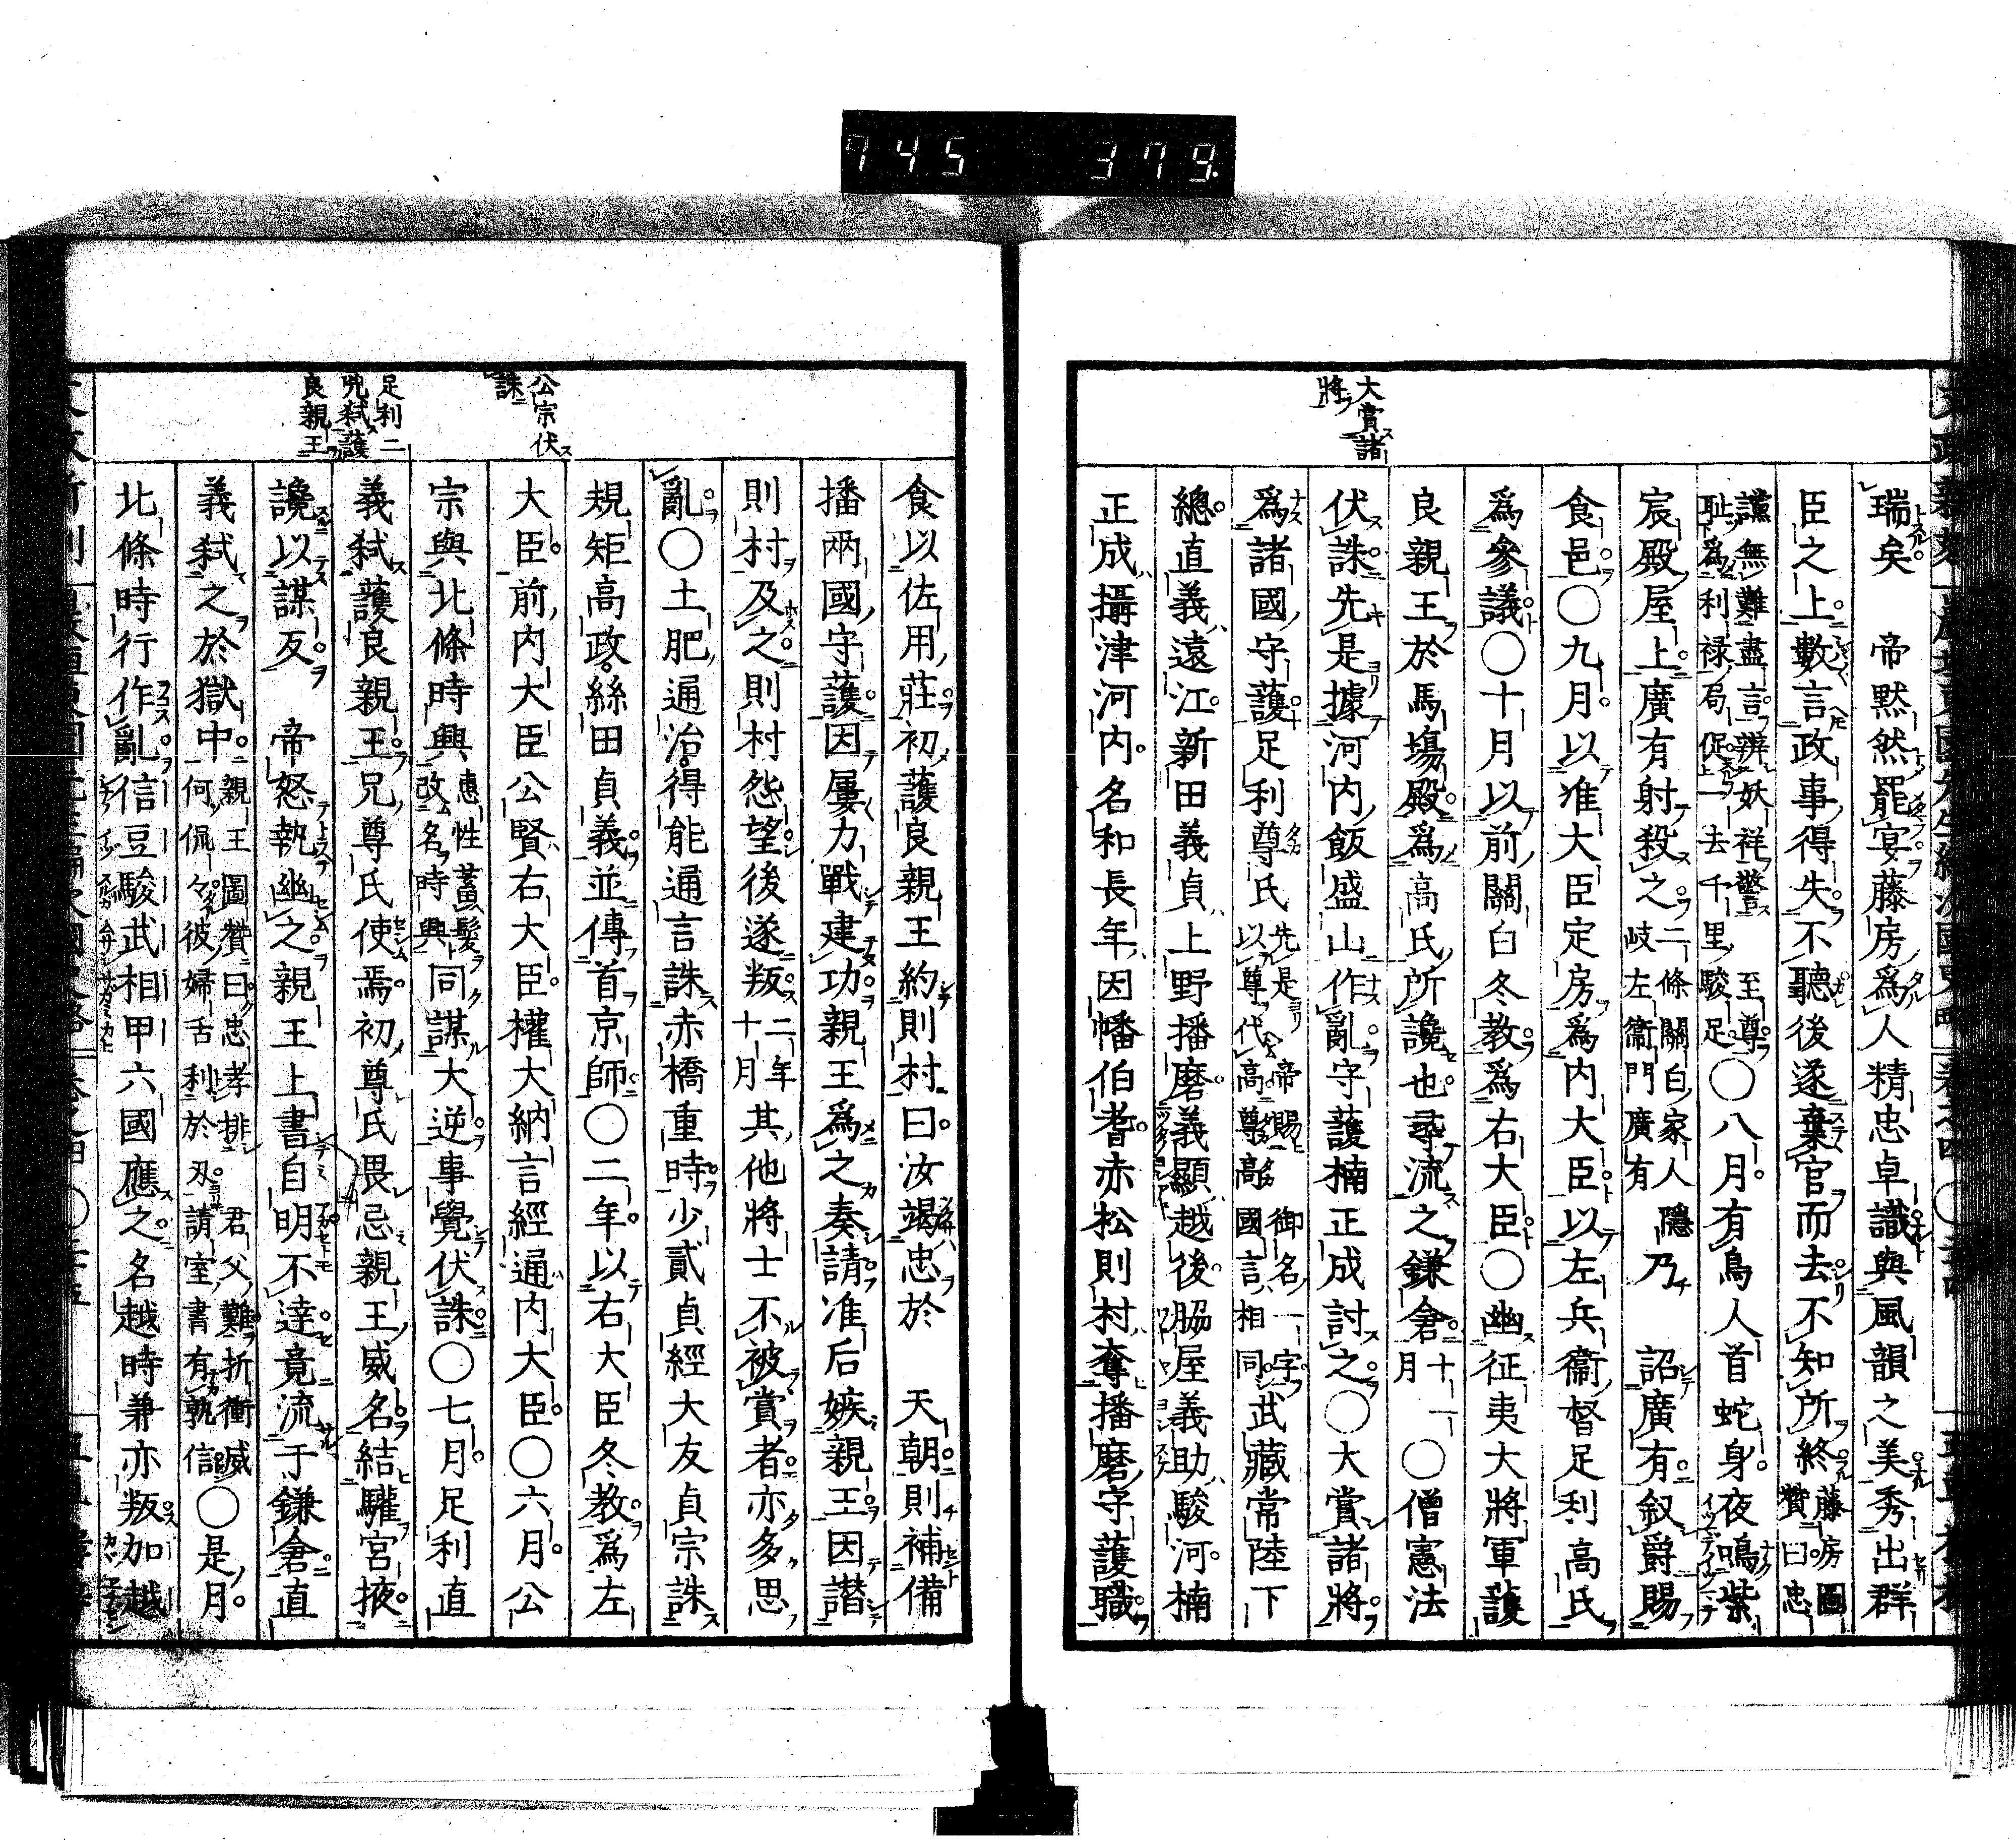 745 379.
大賞諸
將
瑞矣 帝默然罷宴藤房爲人精忠卓識與風韻之美秀出群
臣之上數言政事得失不聽後遂棄官而去不知所終藤房圖贊曰忠
讜無難盡言辨妖祥警至尊
耻爲利祿局促一去千里駿足〇八月有鳥人首蛇身夜鳴紫
宸殿屋上廣有射殺之二條關白家人隱岐左衞門廣有乃 詔廣有叙爵賜
食邑〇九月以准大臣定房爲内大臣以左兵衞督足利高氏
爲參議〇十月以前關白冬教爲右大臣〇幽征夷大將軍護
良親王於馬塲殿爲高氏所讒也尋流之鎌倉十一月〇僧憲法
伏誅先是據河内飯盛山作亂守護楠正成討之〇大賞諸將
爲諸國守護足利尊氏先是帝賜御名一字以尊代高尊高國言相同武藏常陸下
總直義遠江新田義貞上野播磨義顯越後脇屋義助駿河楠
正成攝津河内名和長年因幡伯耆赤松則村奪播磨守護職
公宗伏
誅
足利二
兇弑護
良親王
食以佐用莊初護良親王約則村曰汝竭忠於 天朝則補備
播兩國守護因屢力戰建功親王爲之奏請准后嫉親王因譖
則村及之則村怨望後遂叛二年十月其他將士不被賞者亦多思
亂〇土肥通治得能通言誅赤橋重時少貳貞經大友貞宗誅
規矩高政絲田貞義並傳首京師〇二年以右大臣冬教爲左
大臣前内大臣公賢右大臣權大納言經通内大臣〇六月公
宗與北條時興惠性蓄髮改名時興同謀大逆事覺伏誅〇七月足利直
義弑護良親王兄尊氏使焉初尊氏畏忌親王威名結驩宮掖
讒以謀反 帝怒執幽之親王上書自明不達竟流于鎌倉直
義弑之於獄中親王圖贊曰忠孝排君父難折衝威
何侃々彼婦舌利於刃請室書有孰信〇是月
北條時行作亂信豆駿武相甲六國應之名越時兼亦叛加越